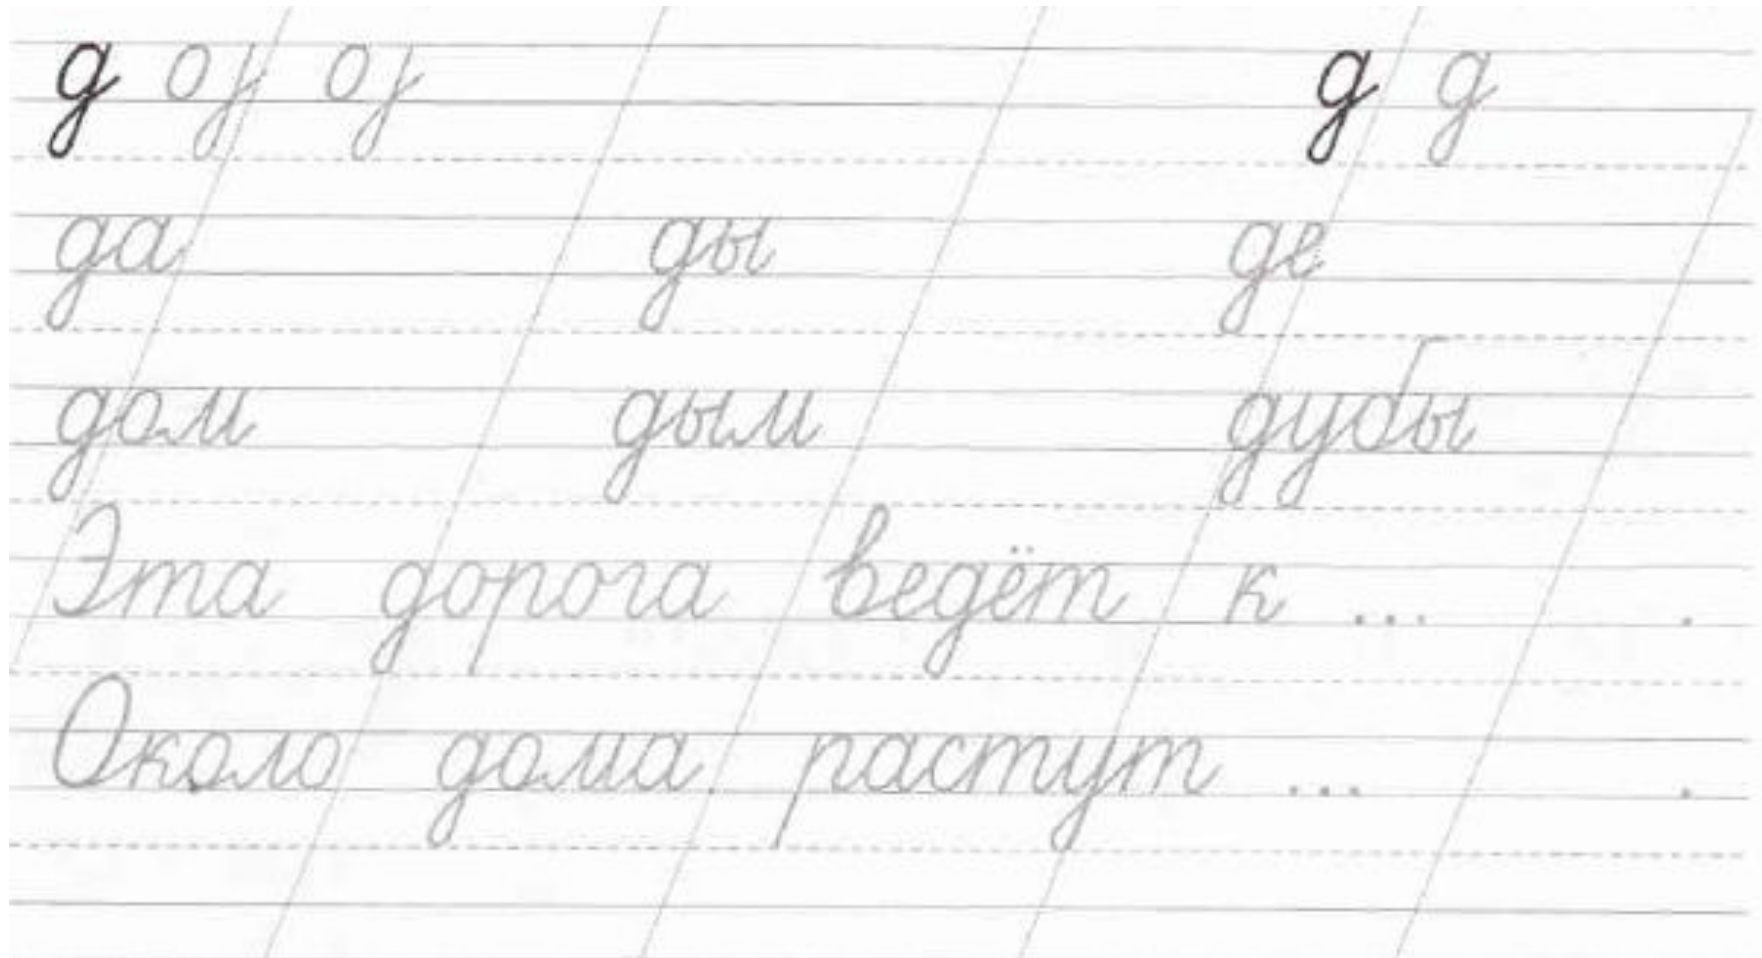 д д д
да ды де
дом дым дубы
Эта дорога ведёт к ... .
Около дома растут ... .